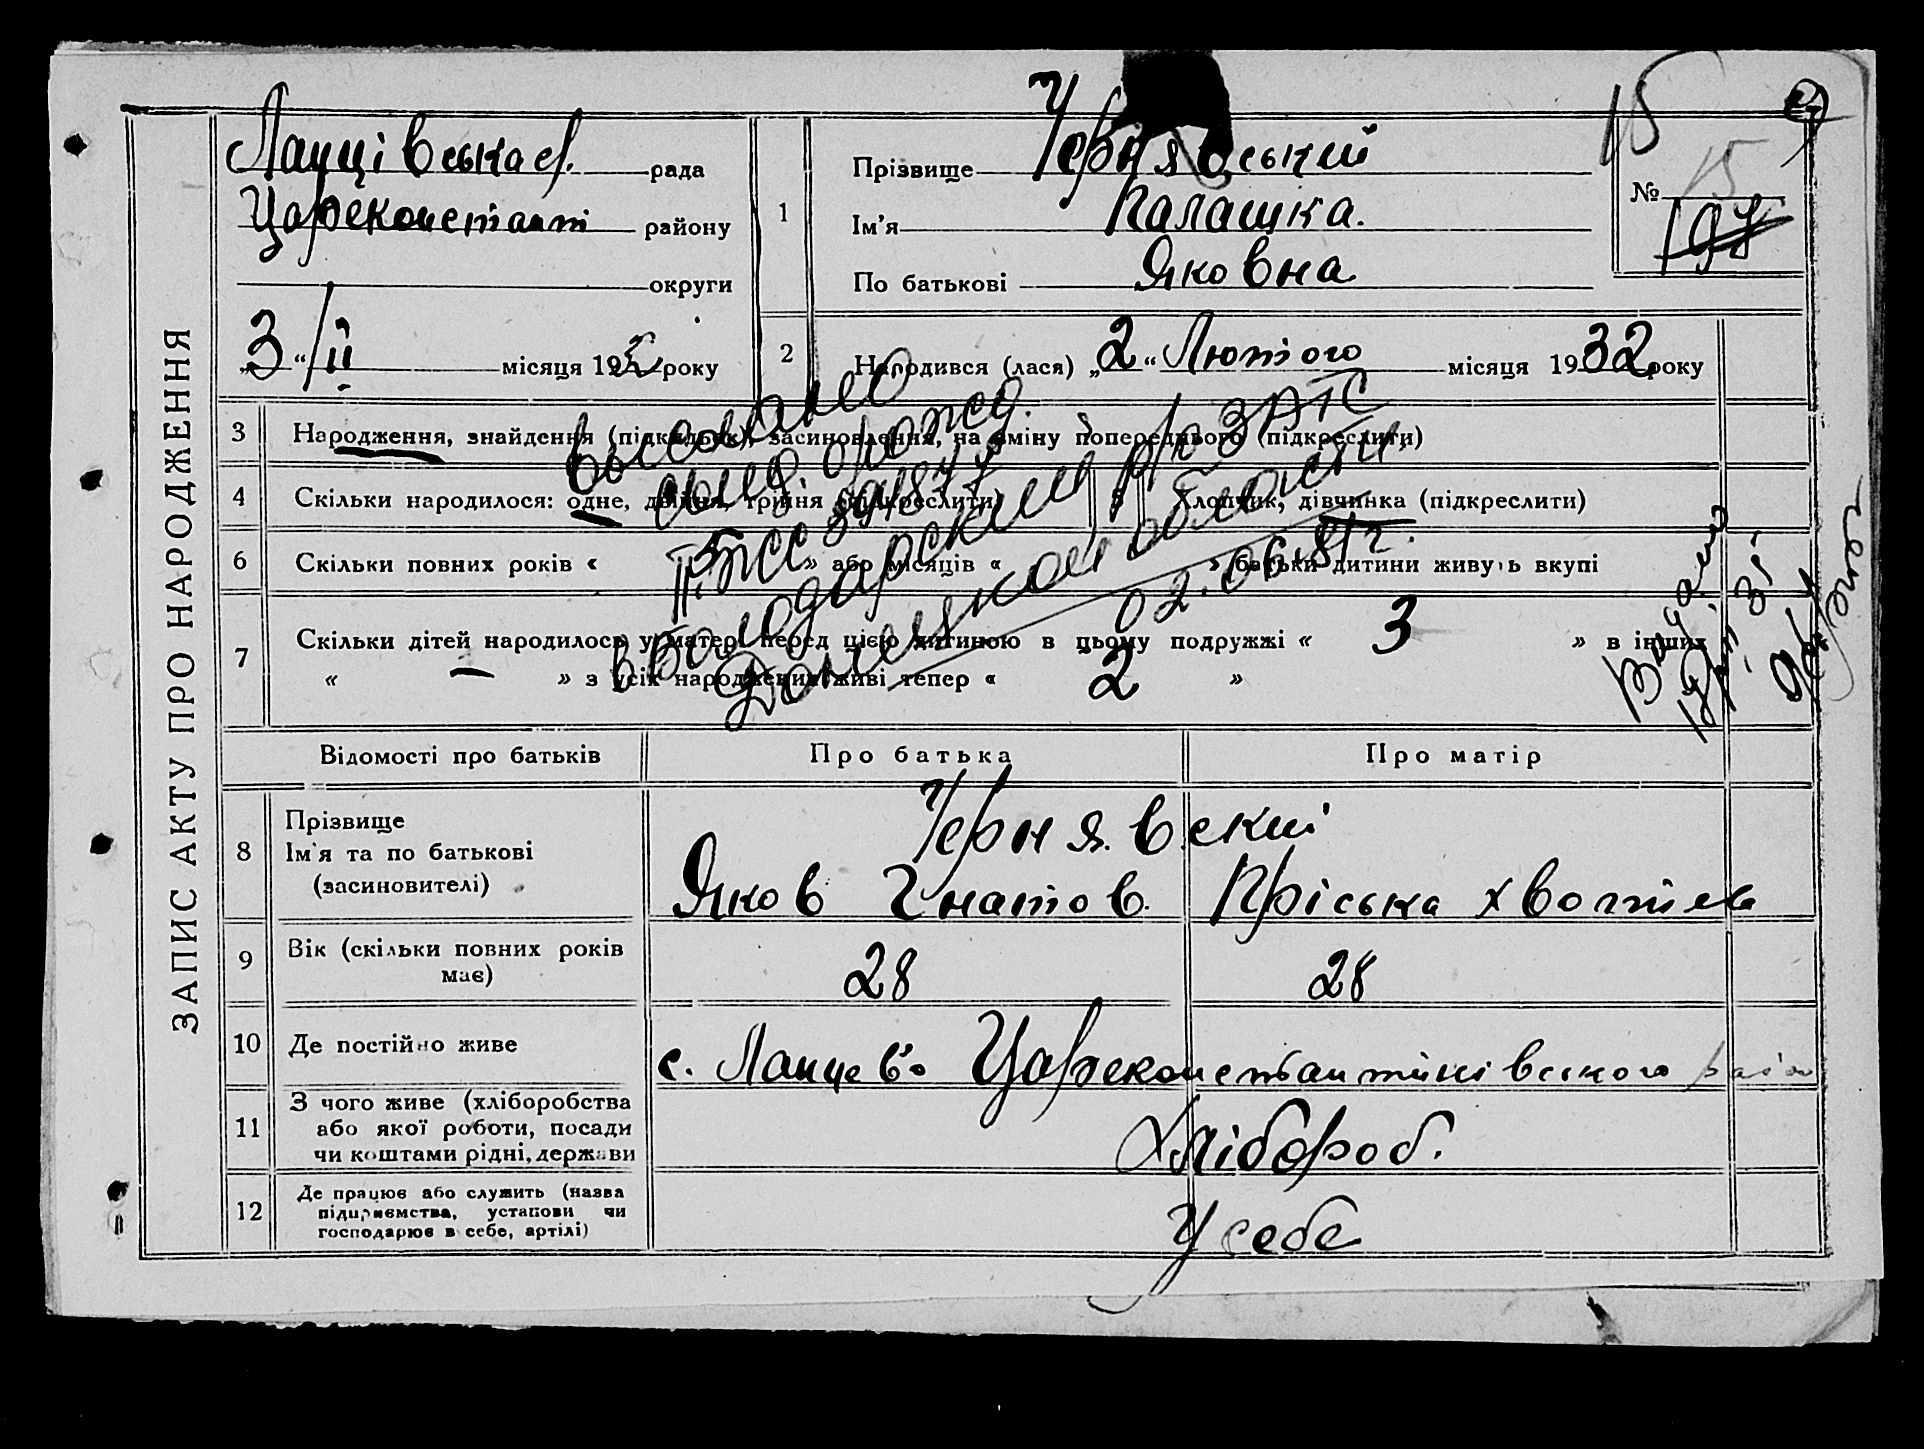 ЗАПИС АКТУ ПРО НАРОДЖЕННЯ
Ланцівська с/. рада
Цареконстант району
округи
„3“ /ІІ місяця 1932 року
1
Прізвище Чернявський
Ім'я Палашка.
По батькові Яковна
15
№ 15
197
2
Народився (лася) „2“ Лютого місяця 1932 року
3 Народження, знайдення (підкидьок), засиновлення, на зміну попереднього (підкреслити)
4 Скільки народилося: одне, двійня, трійня (підкреслити)
5 Хлопчик, дівчинка (підкреслити)
6 Скільки повних років « » або місяців « » батьки дитини живуть вкупі
7 Скільки дітей народилось у матері перед цією дитиною в цьому подружжі « 3 » в інших
« – » з усіх народжених живі тепер « 2 »
Выслано
свид. о рожд.
591877
в Володарский р/о ЗАГС
Донецкой области
02.06.81 г.
Видано
Відомості про батьків
Про батька
Про матір
8 Прізвище
Ім'я та по батькові
(засиновителі)
Чернявский
Яков Гнатов.
Пріська
9 Вік (скільки повних років
має)
28
28
10 Де постійно живе
с. Ланцево Цареконстантинівського району
11 З чого живе (хліборобства
або якої роботи, посади
чи коштами рідні, держави
Хлібороб.
12 Де працює або служить (назва
підприємства, установи чи
господарює в себе, артілі)
У себе